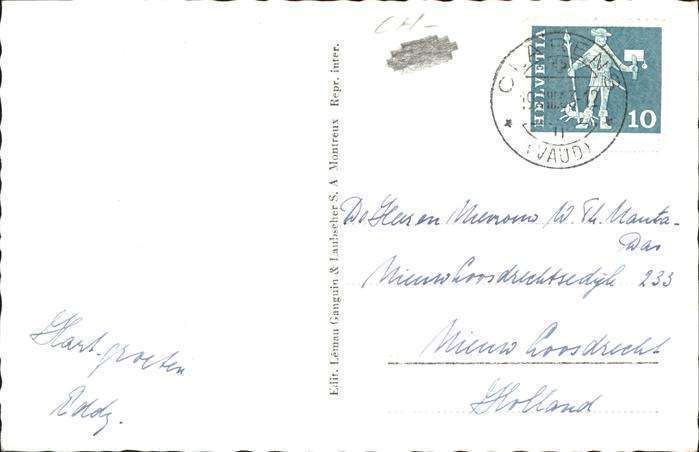 CH-
HELVETIA
10
CLARENS
(VAUD)
Edit. Léman Ganguin & Laubscher S. A Montreux Repr. inter.
De Heer en Mevrouw W. Th. Manta-
Das
Nieuw Loosdrechtsedijk 233
Nieuw Loosdrecht
Holland
Hart. groeten
Eddy.